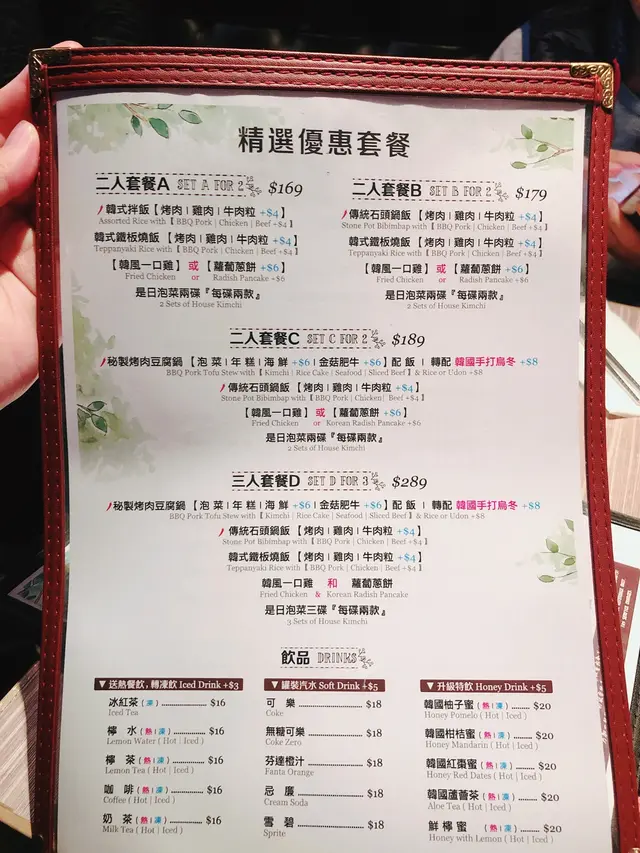 精選優惠套餐
二人套餐A SET A FOR 2 $169
韓式拌飯【烤肉 | 雞肉 | 牛肉粒 +$4】
Assorted Rice with【BBQ Pork | Chicken | Beef +$4】
韓式鐵板燒飯【烤肉 | 雞肉 | 牛肉粒 +$4】
Teppanyaki Rice with【BBQ Pork | Chicken | Beef +$4】
【韓風一口雞】或【蘿蔔蔥餅 +$6】
Fried Chicken or Radish Pancake +$6
是日泡菜兩碟『每碟兩款』
2 Sets of House Kimchi
二人套餐B SET B FOR 2 $179
傳統石頭鍋飯【烤肉 | 雞肉 | 牛肉粒 +$4】
Stone Pot Bibimbap with【BBQ Pork | Chicken | Beef +$4】
韓式鐵板燒飯【烤肉 | 雞肉 | 牛肉粒 +$4】
Teppanyaki Rice with【BBQ Pork | Chicken | Beef +$4】
【韓風一口雞】或【蘿蔔蔥餅 +$6】
Fried Chicken or Radish Pancake +$6
是日泡菜兩碟『每碟兩款』
2 Sets of House Kimchi
二人套餐C SET C FOR 2 $189
秘製烤肉豆腐鍋【泡菜 | 年糕 | 海鮮 +$6 | 金菇肥牛 +$6】配飯 | 轉配 韓國手打烏冬 +$8
BBQ Pork Tofu Stew with【Kimchi | Rice Cake | Seafood | Sliced Beef】& Rice or Udon +$8
傳統石頭鍋飯【烤肉 | 雞肉 | 牛肉粒 +$4】
Stone Pot Bibimbap with【BBQ Pork | Chicken | Beef +$4】
【韓風一口雞】或【蘿蔔蔥餅 +$6】
Fried Chicken or Korean Radish Pancake +$6
是日泡菜兩碟『每碟兩款』
2 Sets of House Kimchi
三人套餐D SET D FOR 3 $289
秘製烤肉豆腐鍋【泡菜 | 年糕 | 海鮮 +$6 | 金菇肥牛 +$6】配飯 | 轉配 韓國手打烏冬 +$8
BBQ Pork Tofu Stew with【Kimchi | Rice Cake | Seafood | Sliced Beef】& Rice or Udon +$8
傳統石頭鍋飯【烤肉 | 雞肉 | 牛肉粒 +$4】
Stone Pot Bibimbap with【BBQ Pork | Chicken | Beef +$4】
韓式鐵板燒飯【烤肉 | 雞肉 | 牛肉粒 +$4】
Teppanyaki Rice with【BBQ Pork | Chicken | Beef +$4】
韓風一口雞 和 蘿蔔蔥餅
Fried Chicken & Korean Radish Pancake
是日泡菜三碟『每碟兩款』
3 Sets of House Kimchi
飲品 DRINKS
▼ 送熱餐飲, 轉凍飲 Iced Drink +$3
冰紅茶 (凍) $16
Iced Tea
檸水 (熱 | 凍) $16
Lemon Water ( Hot | Iced )
檸茶 (熱 | 凍) $16
Lemon Tea ( Hot | Iced )
咖啡 (熱 | 凍) $16
Coffee ( Hot | Iced )
奶茶 (熱 | 凍) $16
Milk Tea ( Hot | Iced )
▼ 罐裝汽水 Soft Drink +$5
可樂 $18
Coke
無糖可樂 $18
Coke Zero
芬達橙汁 $18
Fanta Orange
忌廉 $18
Cream Soda
雪碧 $18
Sprite
▼ 升級特飲 Honey Drink +$5
韓國柚子蜜 (熱 | 凍) $20
Honey Pomelo ( Hot | Iced )
韓國柑桔蜜 (熱 | 凍) $20
Honey Mandarin ( Hot | Iced )
韓國紅棗蜜 (熱 | 凍) $20
Honey Red Dates ( Hot | Iced )
韓國蘆薈茶 (熱 | 凍) $20
Aloe Tea ( Hot | Iced )
鮮檸蜜 (熱 | 凍) $20
Honey with Lemon ( Hot | Iced )